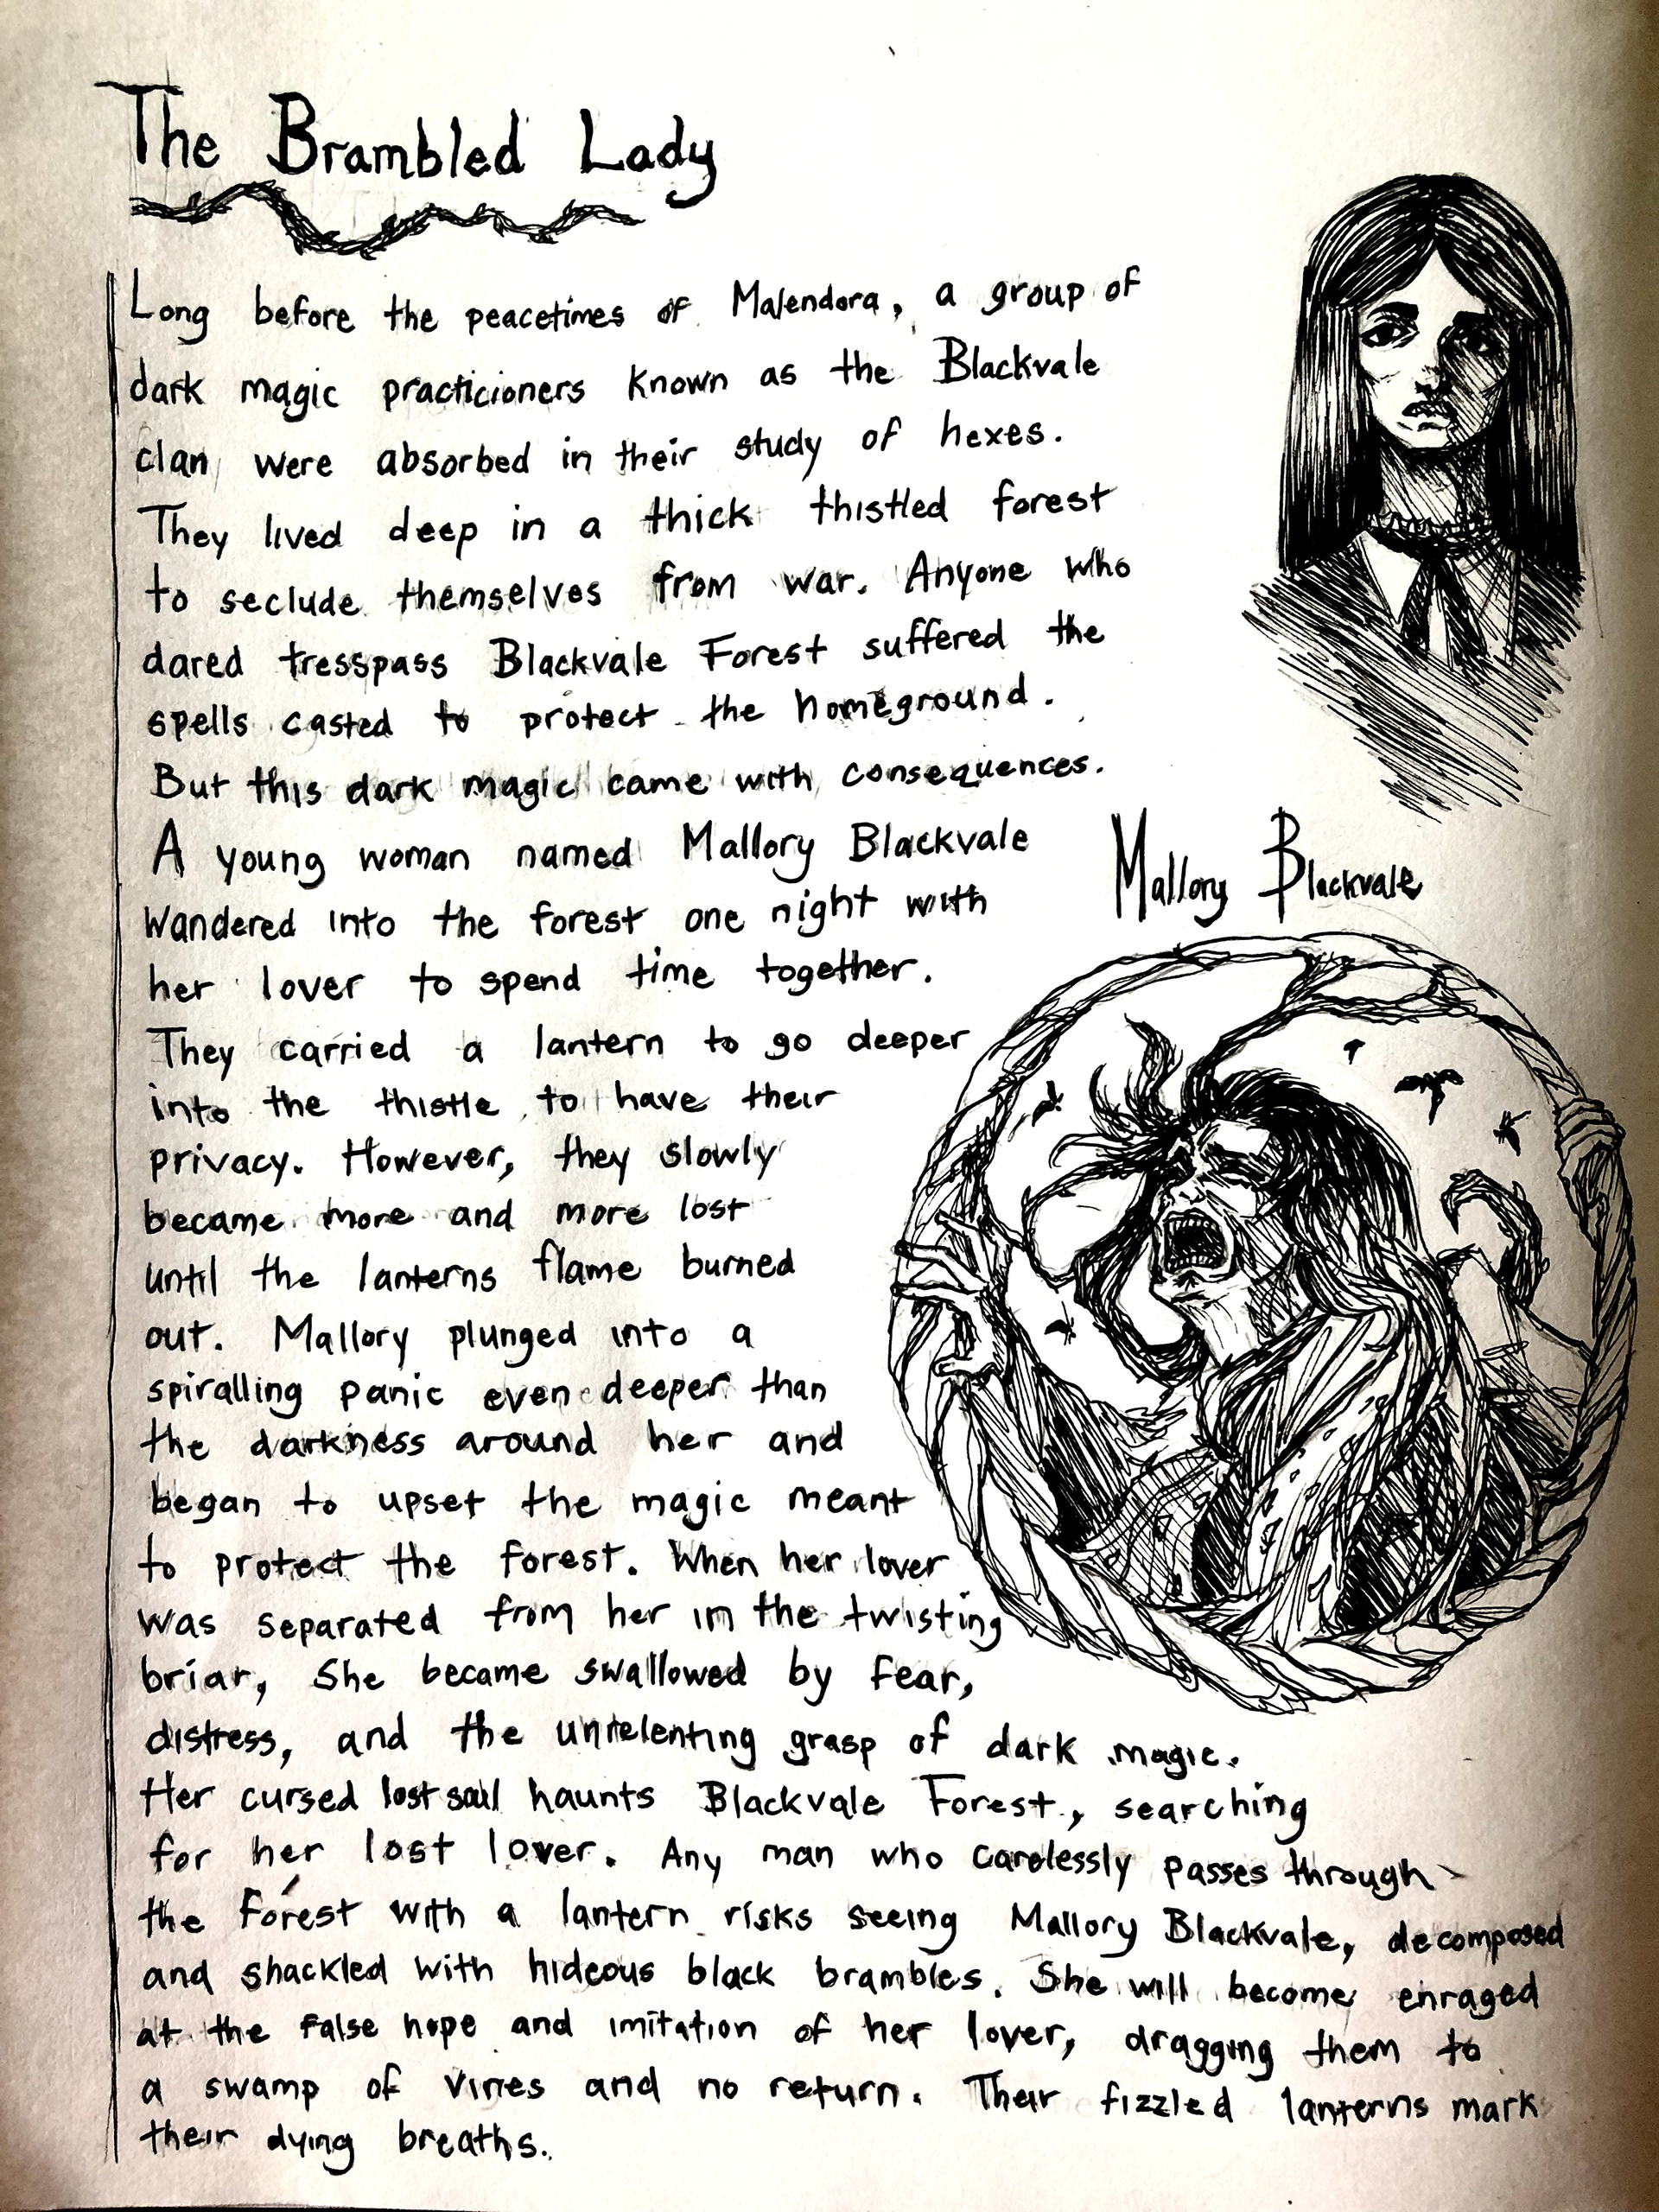 The Brambled Lady
Long before the peacetimes of Malendora, a group of
dark magic practicioners known as the Blackvale
clan were absorbed in their study of hexes.
They lived deep in a thick thistled forest
to seclude themselves from war. Anyone who
dared tresspass Blackvale Forest suffered the
spells casted to protect the homeground.
But this dark magic came with consequences.
A young woman named Mallory Blackvale
wandered into the forest one night with
her lover to spend time together.
They carried a lantern to go deeper
into the thistle to have their
privacy. However, they slowly
became more and more lost
until the lanterns flame burned
out. Mallory plunged into a
spiralling panic even deeper than
the darkness around her and
began to upset the magic meant
to protect the forest. When her lover
was separated from her in the twisting
briar, She became swallowed by fear,
distress, and the unrelenting grasp of dark magic.
Her cursed lost soul haunts Blackvale Forest, searching
for her lost lover. Any man who carelessly passes through
the forest with a lantern risks seeing Mallory Blackvale, decomposed
and shackled with hideous black brambles. She will become enraged
at the false hope and imitation of her lover, dragging them to
a swamp of vines and no return. Their fizzled lanterns mark
their dying breaths.
Mallory Blackvale